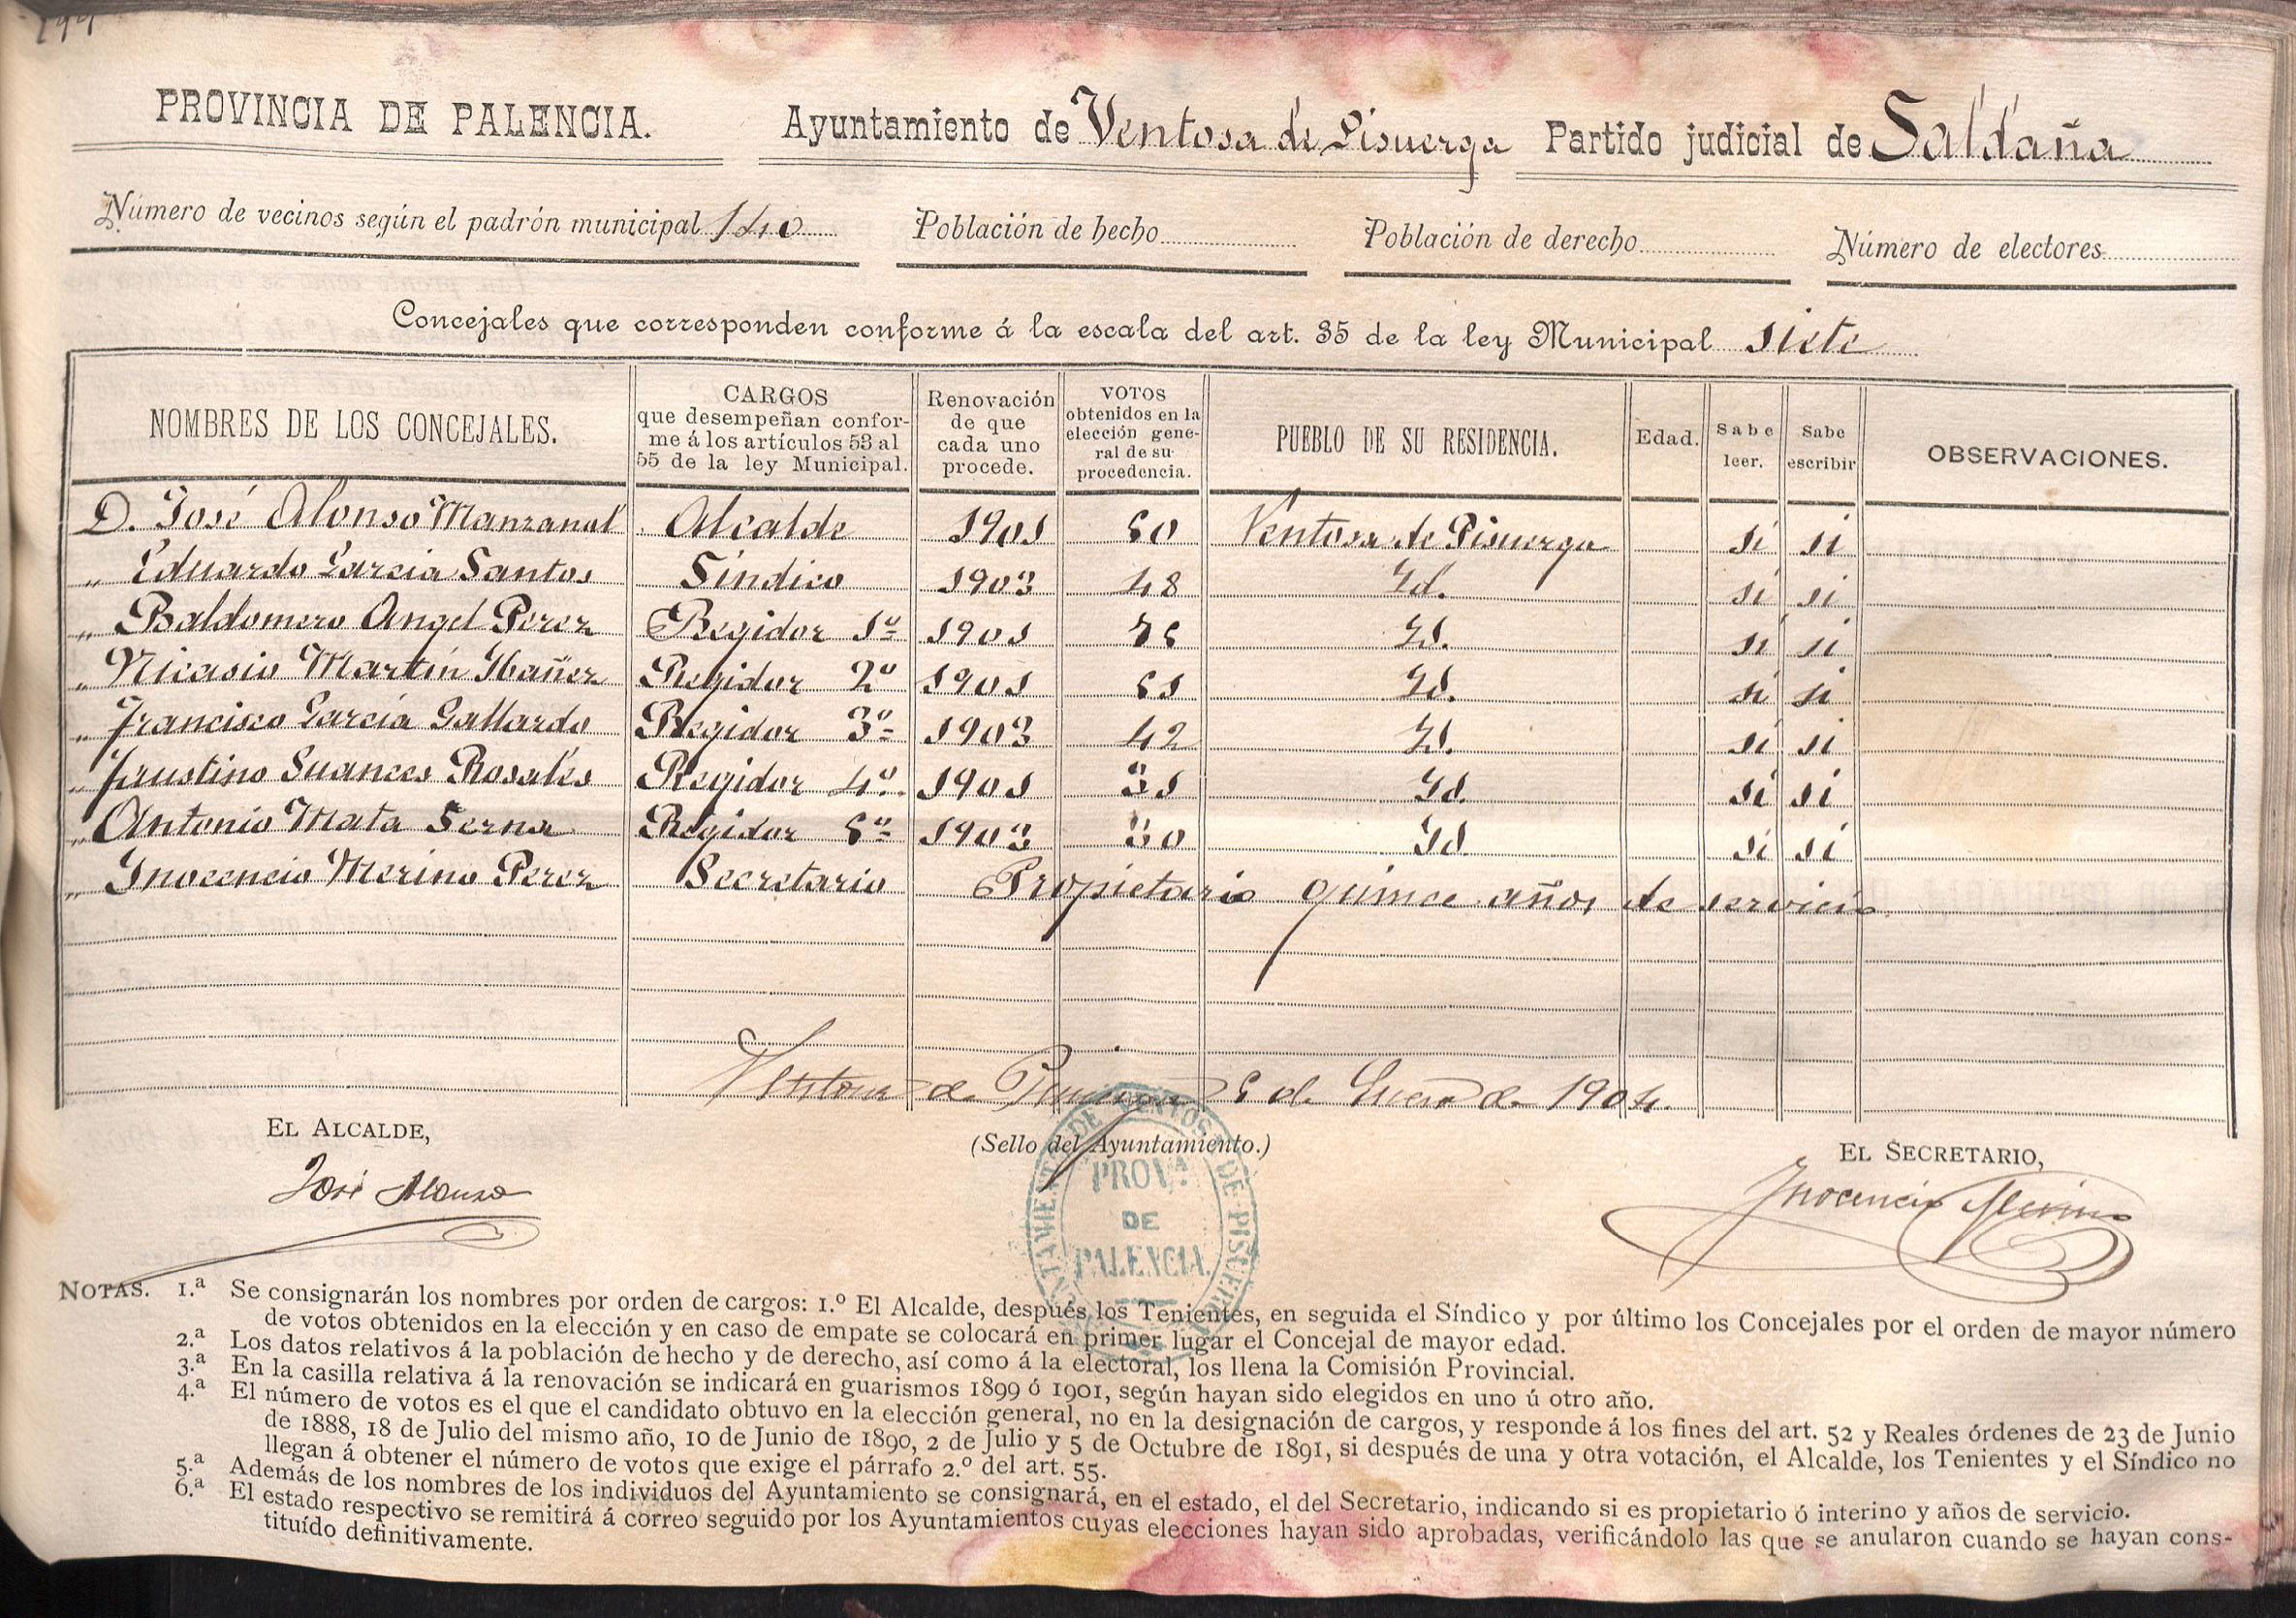 199
PROVINCIA DE PALENCIA. Ayuntamiento de Ventosa de Pisuerga Partido judicial de Saldaña
Número de vecinos según el padrón municipal 140 Población de hecho Población de derecho Número de electores
Concejales que corresponden conforme á la escala del art. 35 de la ley Municipal siete
NOMBRES DE LOS CONCEJALES. CARGOS que desempeñan conforme á los artículos 53 al 55 de la ley Municipal. Renovación de que cada uno procede. VOTOS obtenidos en la elección general de su procedencia. PUEBLO DE SU RESIDENCIA. Edad. Sabe leer. Sabe escribir OBSERVACIONES.
D. José Alonso Manzanal Alcalde 1901 50 Ventosa de Pisuerga si si
„ Eduardo Garcia Santos Síndico 1903 48 Id. si si
„ Baldomero Angel Perez Regidor 1º 1901 Id. si si
„ Nicasio Martín Ibañez Regidor 2º 1901 51 Id. si si
„ Francisco Garcia Gallardo Regidor 3º 1903 42 Id. si si
„ Faustino Suances Rosales Regidor 4º 1901 31 Id. si si
„ Antonio Mata Serna Regidor 5º 1903 30 Id. si si
„ Inocencio Merino Perez Secretario Propietario quince años de servicio
Ventosa de Pisuerga 5 de Enero de 1904.
EL ALCALDE, (Sello del Ayuntamiento.) EL SECRETARIO,
José Alonso
Inocencio Merino
PROV.ª
DE
PALENCIA.
NOTAS. 1.ª Se consignarán los nombres por orden de cargos: 1.º El Alcalde, después los Tenientes, en seguida el Síndico y por último los Concejales por el orden de mayor número
de votos obtenidos en la elección y en caso de empate se colocará en primer lugar el Concejal de mayor edad.
2.ª Los datos relativos á la población de hecho y de derecho, así como á la electoral, los llena la Comisión Provincial.
3.ª En la casilla relativa á la renovación se indicará en guarismos 1899 ó 1901, según hayan sido elegidos en uno ú otro año.
4.ª El número de votos es el que el candidato obtuvo en la elección general, no en la designación de cargos, y responde á los fines del art. 52 y Reales órdenes de 23 de Junio
de 1888, 18 de Julio del mismo año, 10 de Junio de 1890, 2 de Julio y 5 de Octubre de 1891, si después de una y otra votación, el Alcalde, los Tenientes y el Síndico no
llegan á obtener el número de votos que exige el párrafo 2.º del art. 55.
5.ª Además de los nombres de los individuos del Ayuntamiento se consignará, en el estado, el del Secretario, indicando si es propietario ó interino y años de servicio.
6.ª El estado respectivo se remitirá á correo seguido por los Ayuntamientos cuyas elecciones hayan sido aprobadas, verificándolo las que se anularon cuando se hayan cons-
tituído definitivamente.